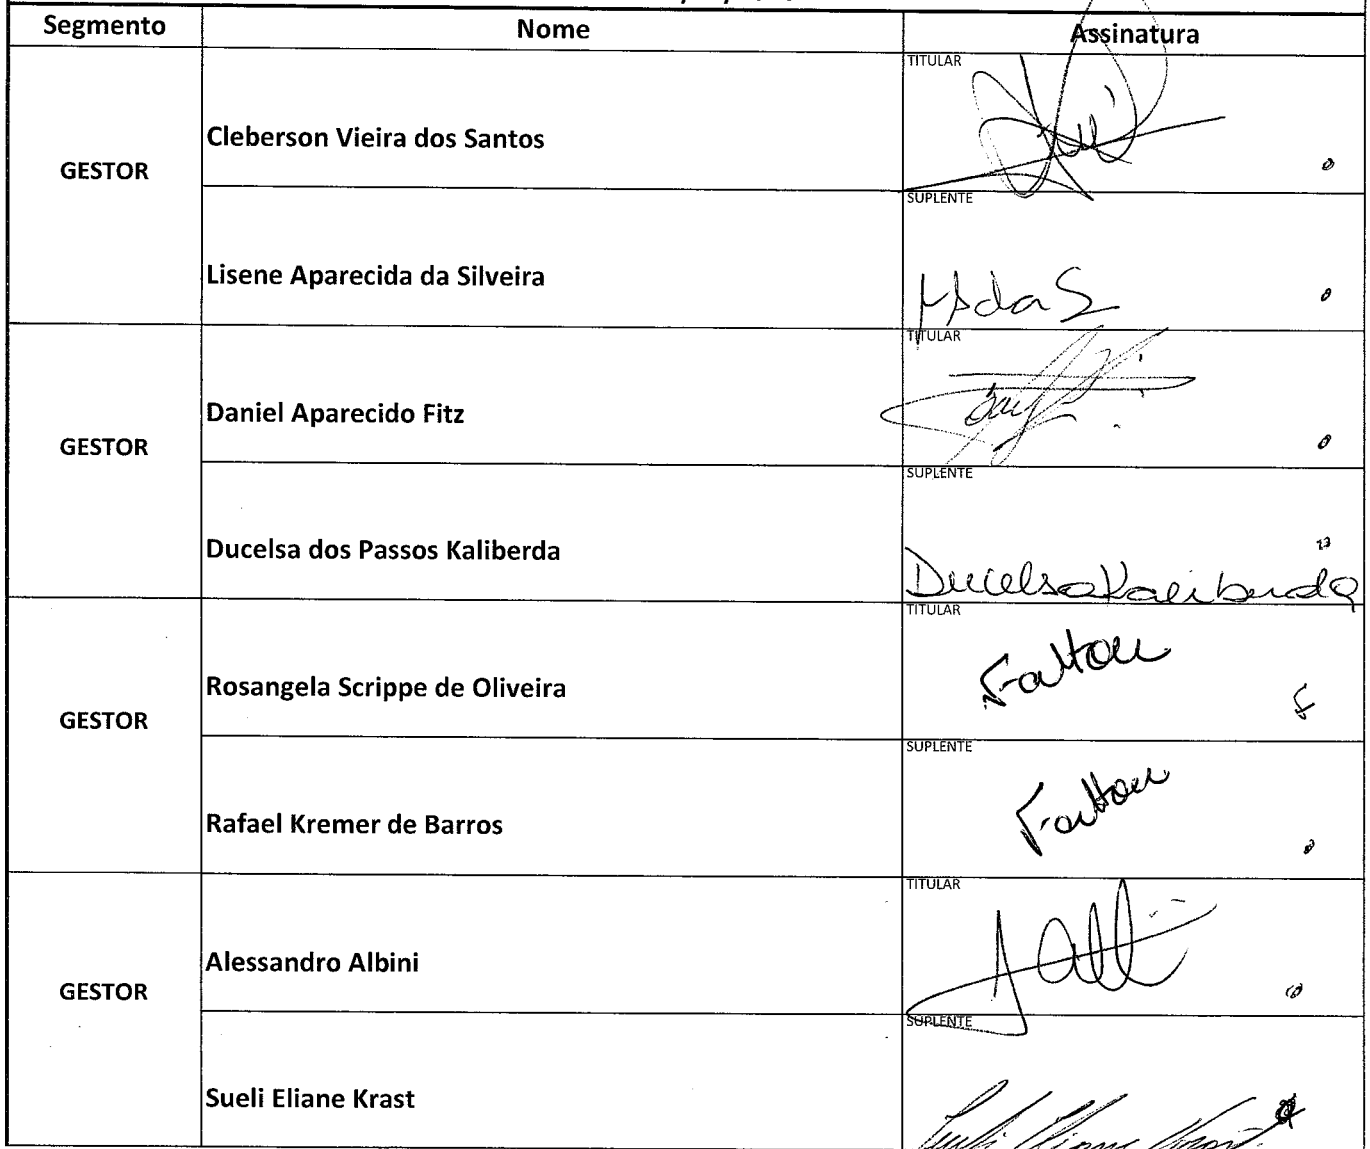 Segmento Nome Assinatura
GESTOR
Cleberson Vieira dos Santos
TITULAR
Lisene Aparecida da Silveira
SUPLENTE
GESTOR
Daniel Aparecido Fitz
TITULAR
Ducelsa dos Passos Kaliberda
SUPLENTE
Ducelsa Kaliberda
GESTOR
Rosangela Scrippe de Oliveira
TITULAR
Rafael Kremer de Barros
SUPLENTE
GESTOR
Alessandro Albini
TITULAR
Sueli Eliane Krast
SUPLENTE